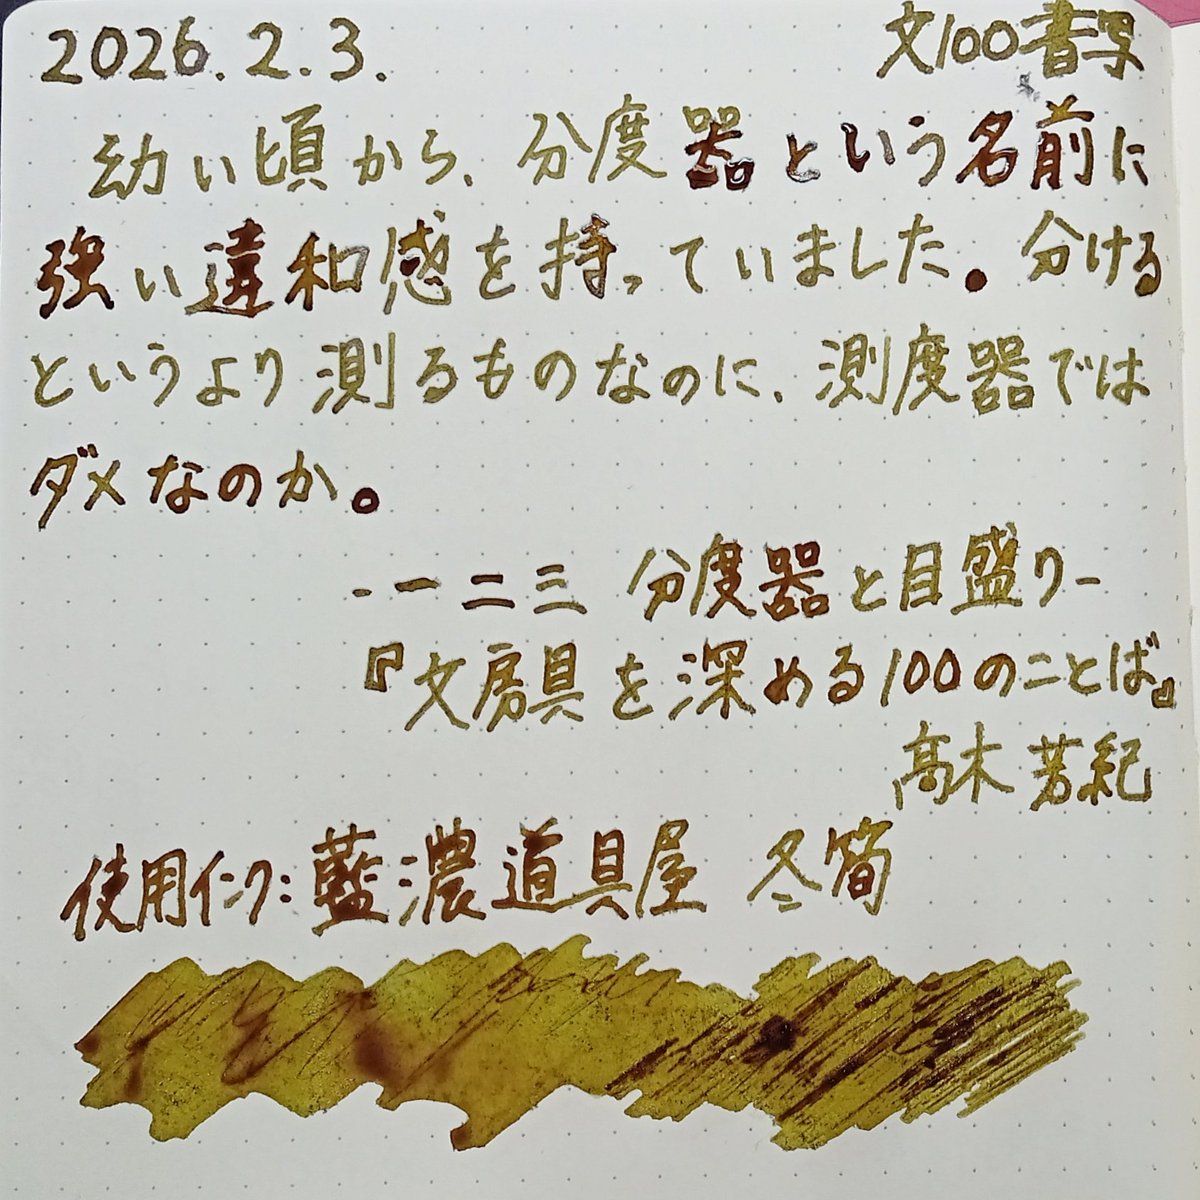 2026.2.3.
文100書写
幼い頃から、分度器という名前に
強い違和感を持っていました。分ける
というより測るものなのに、測度器では
ダメなのか。
-一二三 分度器と目盛り-
『文房具を深める100のことば』
高木芳紀
使用インク:藍濃道具屋 冬筍